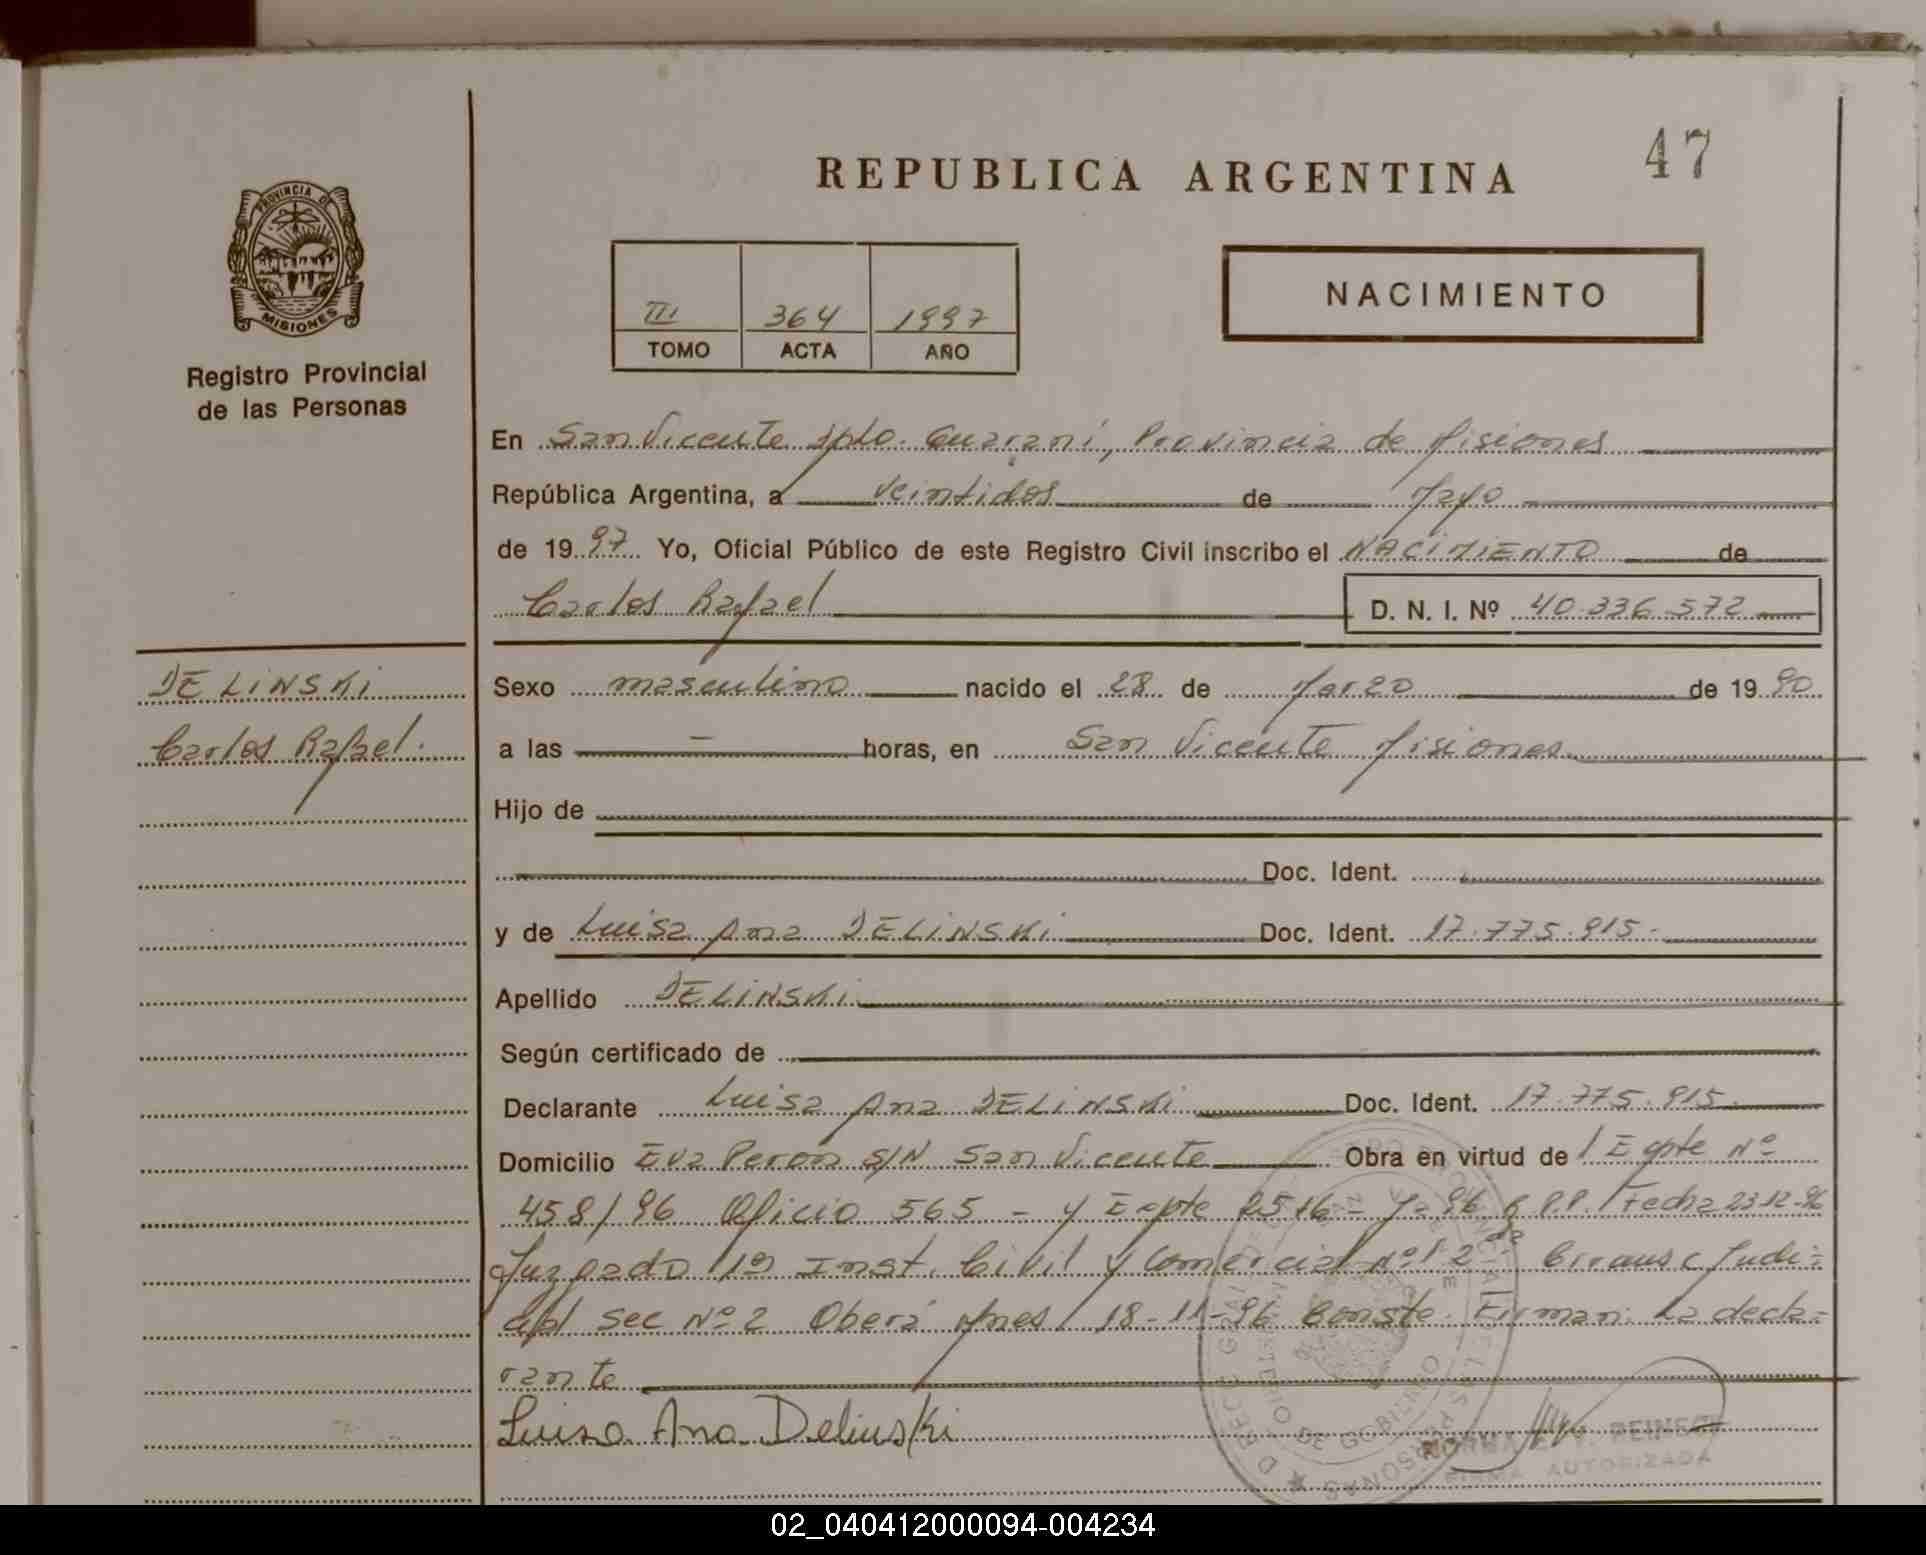 47
REPUBLICA ARGENTINA
PROVINCIA DE
MISIONES
Registro Provincial
de las Personas
III 364 1997
TOMO ACTA AÑO
NACIMIENTO
En San Vicente Dpto. Guaraní, Provincia de Misiones
República Argentina, a veintidos de Mayo
de 1997 Yo, Oficial Público de este Registro Civil inscribo el NACIMIENTO de
Carlos Rafael D. N. I. Nº 40.336.572
DELINSKI
Carlos Rafael.
Sexo masculino nacido el 28 de Marzo de 1990
a las - horas, en San Vicente Misiones
Hijo de
Doc. Ident.
y de Luisa Ana DELINSKI Doc. Ident. 17.775.915.
Apellido DELINSKI
Según certificado de
Declarante Luisa Ana DELINSKI Doc. Ident. 17.775.915.
Domicilio Eva Peron S/N San Vicente Obra en virtud de / Expte Nº
458/96 Oficio 565 - y Expte 2516 - 96 R.P.P. / Fecha 23-12-96
Juzgado 1º Inst. Civil y Comercial Nº 1 2da Circunsc Judi=
cial Sec Nº 2 Oberá Mnes / 18-11-96 Conste. Firman: La decla=
rante
Luisa Ana Delinski
NORMA
FIRMA AUTORIZADA
02_040412000094-004234